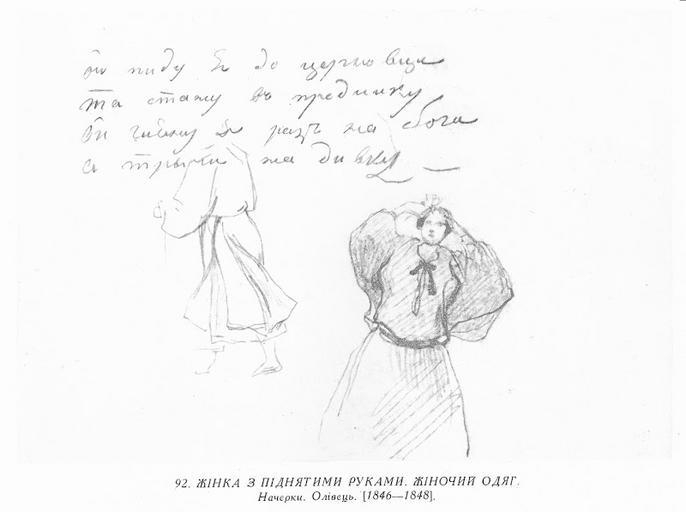 ой пиду я до церковци
та стану въ прединку
ой гляну я разъ на бога
а тричи на дивку
92. ЖІНКА З ПІДНЯТИМИ РУКАМИ. ЖІНОЧИЙ ОДЯГ.
Начерки. Олівець. [1846—1848].